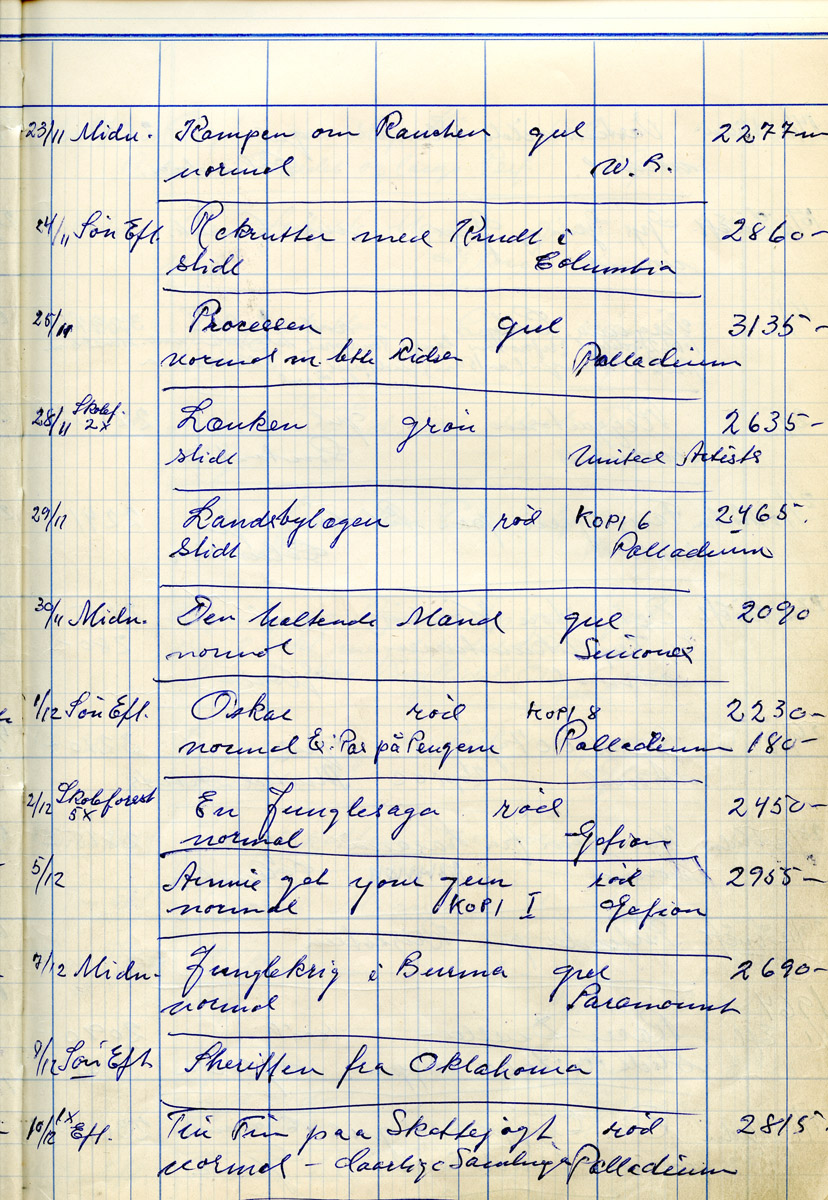 23/11 Midn. Kampen om Ranchen gul 2277m
normal W. B.
24/11 Søn Eft. Rekrutter med Krudt i 2860-
slidt Columbia
25/11 Processen gul 3135-
normal m. lette Ridser Palladium
28/11 Skolef. 2x Lænken grøn 2635-
slidt United Artists
29/11 Landsbylægen rød KOPI 6 2465-
Slidt Palladium
30/11 Midn. Den haltende Mand gul 2090
normal
1/12 Søn Eft. Oskar rød KOPI 8 2230-
normal Ex: Par på Pengene Palladium 180-
2/12 Skoleforest 5x En Junglesaga rød 2450-
normal Gefion
5/12 Annie get your gun rød 2955-
normal KOPI I Gefion
7/12 Midn. Junglekrig i Burma gul 2690-
normal Paramount
8/12 Søn Eft Sheriffen fra Oklahoma
10/12 1x Eft. Tin Tin paa Skattejagt rød 2815-
normal - daarlige Samlinger Palladium